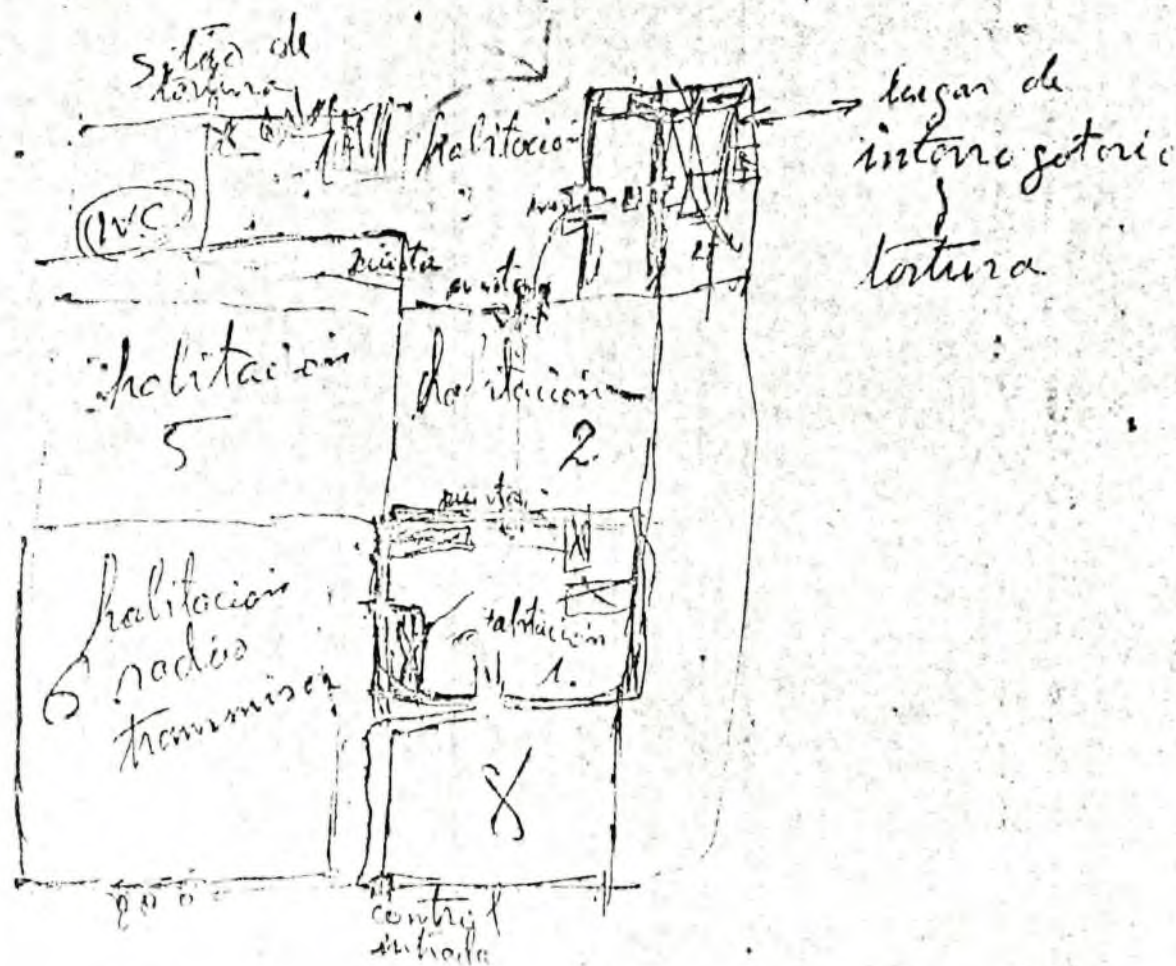 sitio de
tortura
habitacion
lugar de
interrogatorio
y
tortura
WC
puerta
habitacion
5
habitacion
2
puerta
habitacion
radio
transmisor
6
habitacion
1.
8
control
entrada